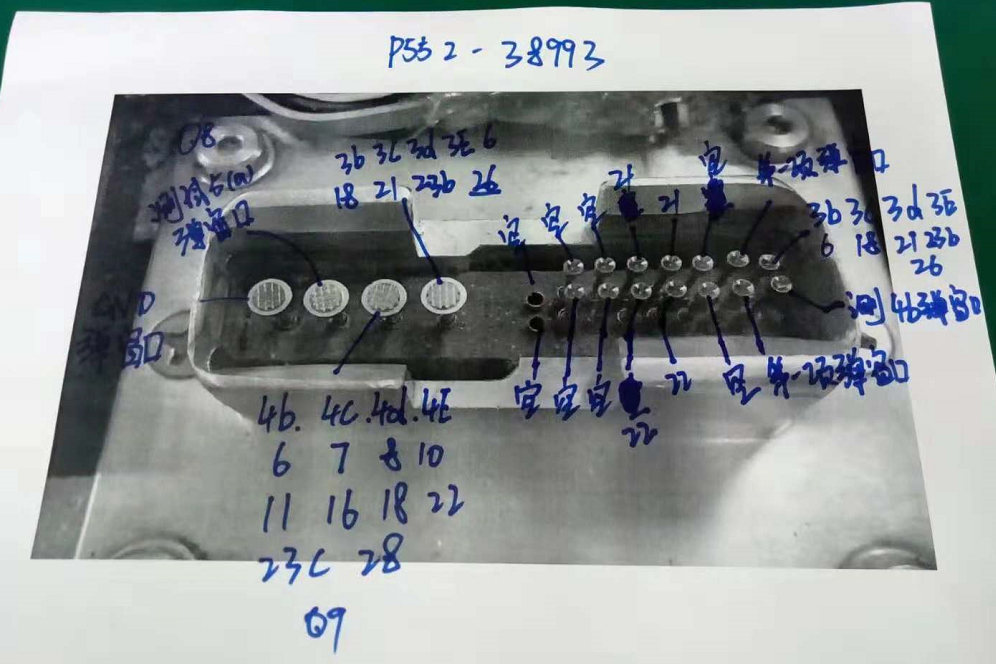 P552-38993
Q8
3b 3C 3d 3E 6
18 21 23b 26
测试5(a)
弹窗口
GND
弹窗口
空 空 空 21 21 空
第一项弹窗口
3b 3C 3d 3E
6 18 21 23b
26
测4b弹窗口
空 空 空 22 22 空 第一项弹窗口
4b. 4C. 4d. 4E
6 7 8 10
11 16 18 22
23C 28
Q9